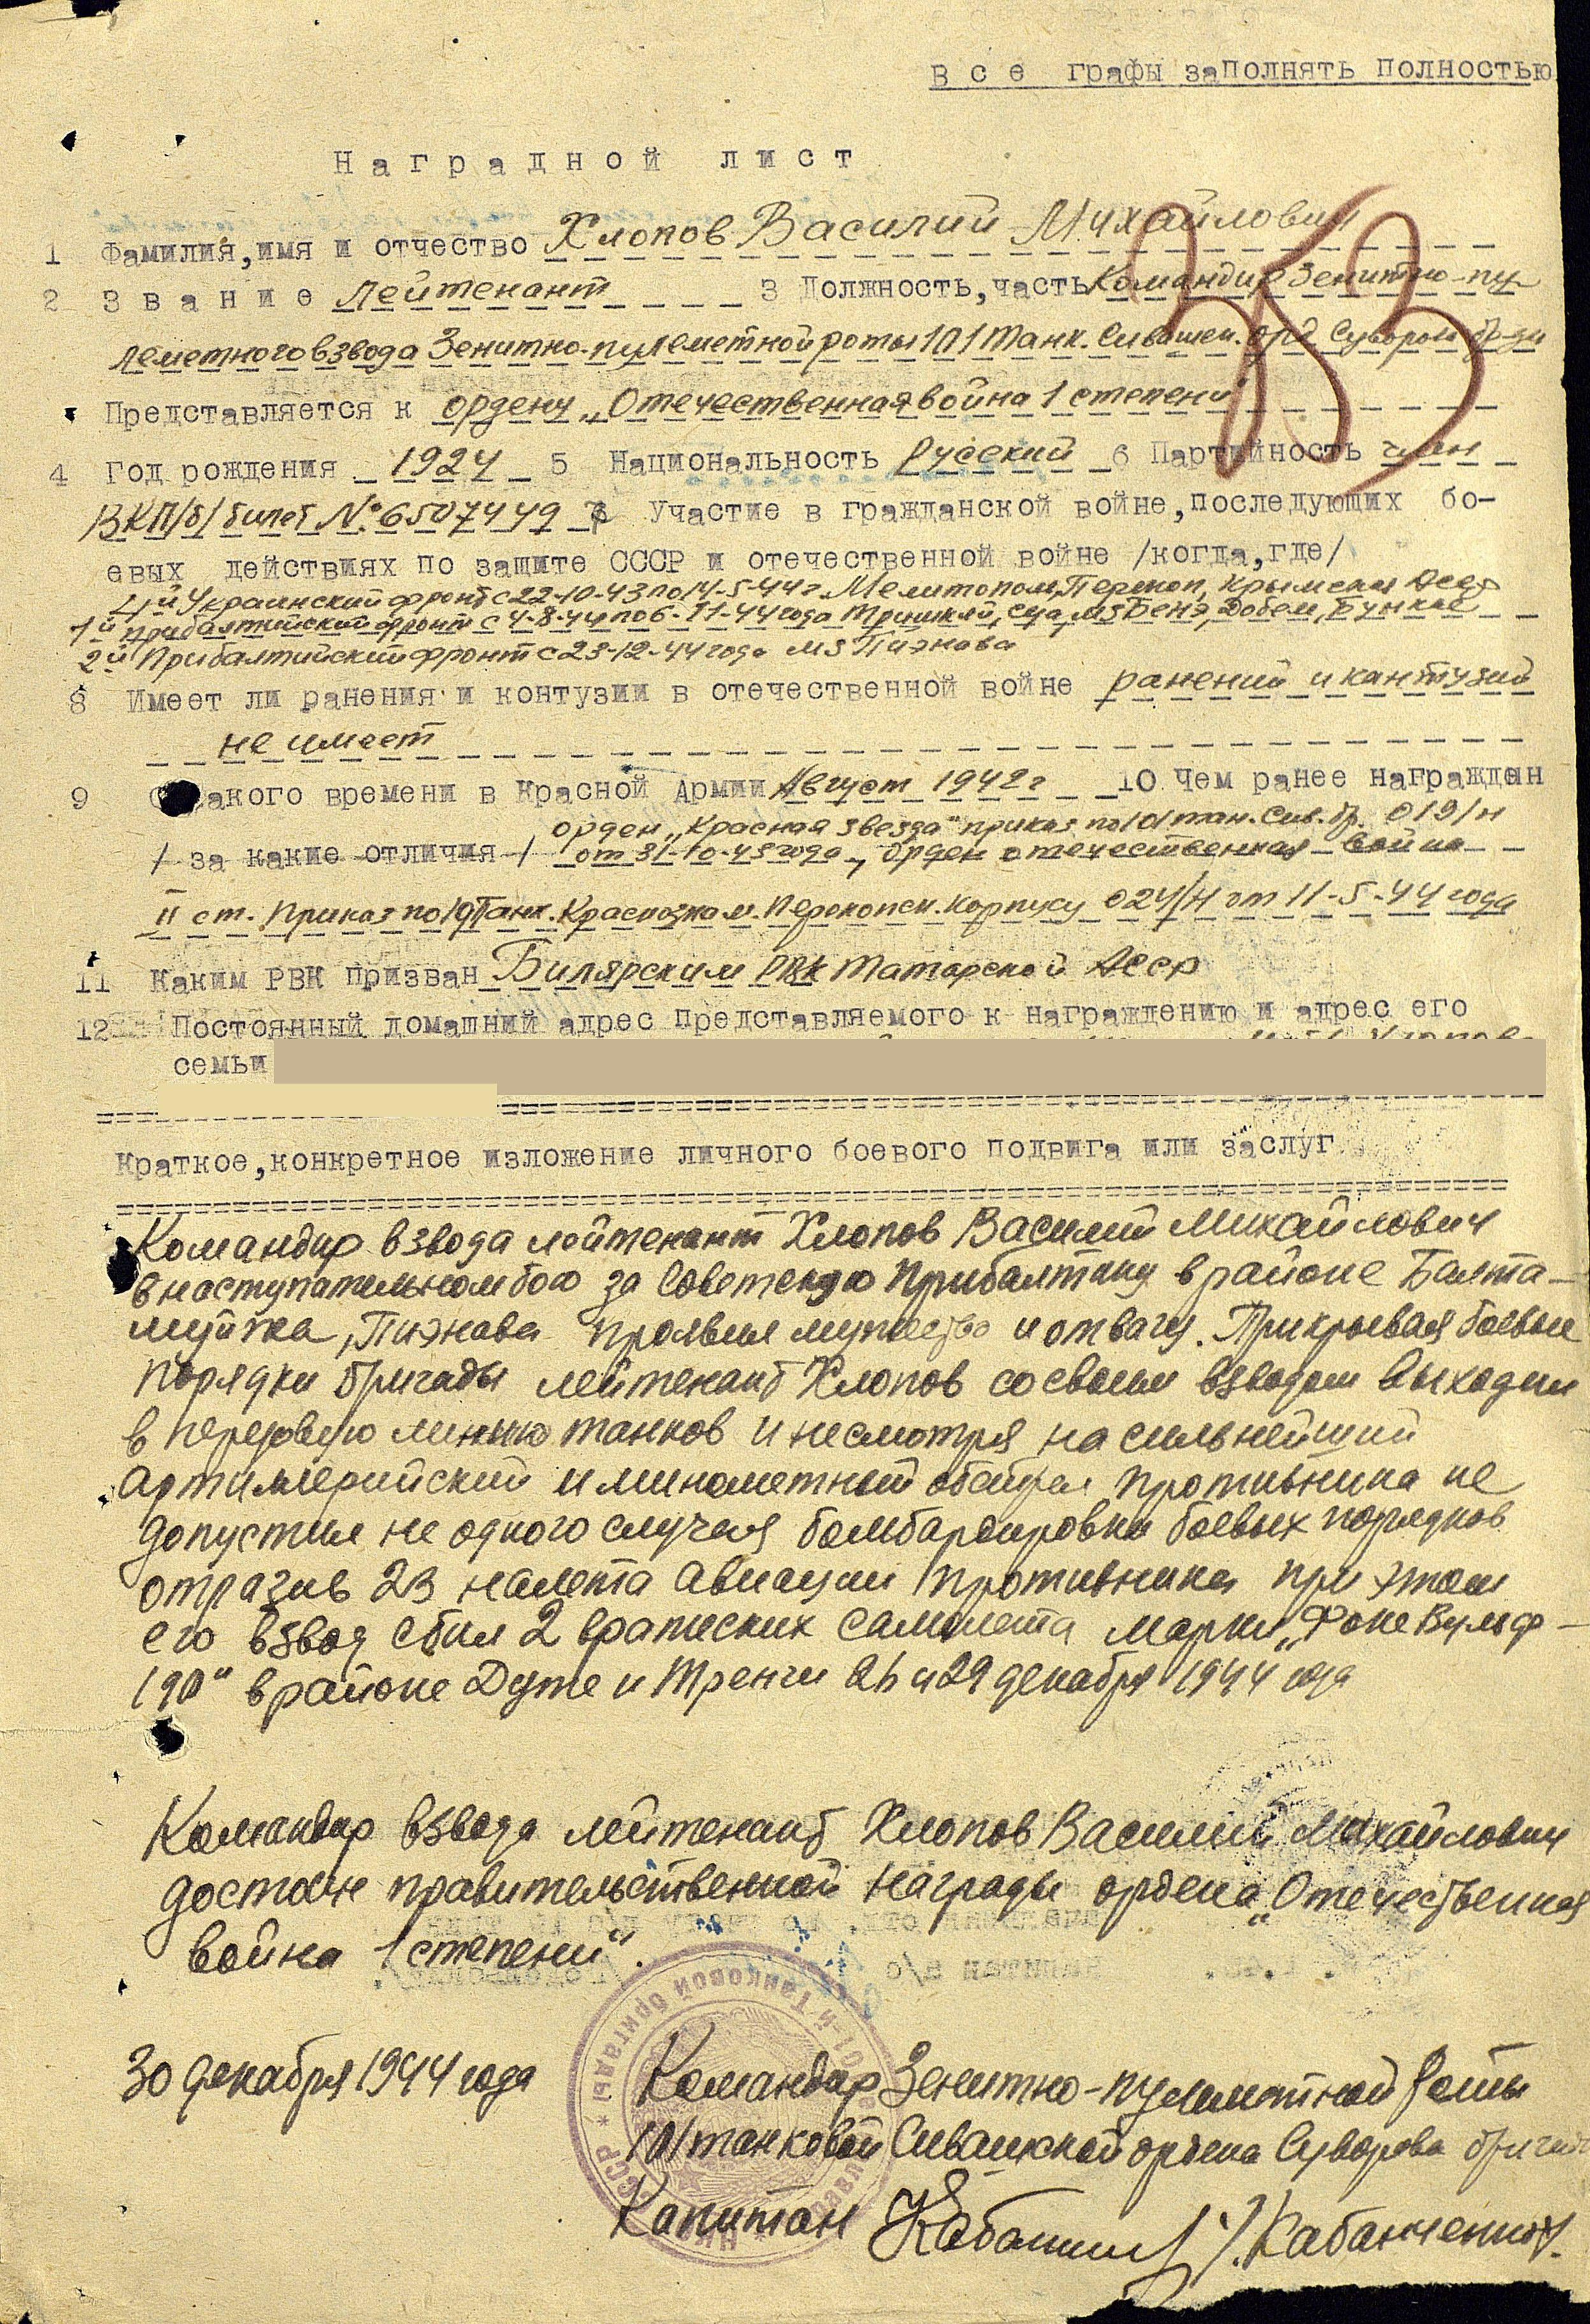 Все графы заполнять полностью
Наградной лист
353
1 Фамилия, имя и отчество Хлопов Василий Михайлович
2 Звание лейтенант 3 Должность, часть Командир Зенитно-пу-
леметного взвода Зенитно-пулеметной роты 101 танк. Сивашск. орд Суворова бр-ды
Представляется к ордену „Отечественная война 1 степени"
4 Год рождения 1924 5 Национальность Русский 6 Партийность член
ВКП/б/ билет № 6507449 7 Участие в гражданской войне, последующих бо-
евых действиях по защите СССР и отечественной войне /когда, где/
4й Украинский фронт с 22-10-43 по 14-5-44 г. Мелитополь, Перекоп, Крымская АССР
1й прибалтийский фронт с 4-8-44 по 6-11-44 года Тришкяй, Ауце, Добеле,
2й Прибалтийский фронт с 23-12-44 года мз Пиэнава
8 Имеет ли ранения и контузии в отечественной войне ранений и кантузий
не имеет
9 С какого времени в Красной Армии Август 1942 г 10 Чем ранее награжден
орден „Красная звезда" приказ по 101 тан. Сив. бр. 019/н
/ за какие отличия / от 31-10-43 года, Орден отечественная война
II ст. Приказ по 19 Танк. Краснознам. Перекопск. Корпусу 024/н от 11-5-44 года
11 Каким РВК призван Билярским РВК Татарской АССР
12 Постоянный домашний адрес представляемого к награждению и адрес его
семьи
Краткое, конкретное изложение личного боевого подвига или заслуг
Командир взвода лейтенант Хлопов Василий Михайлович
в наступательном бою за Советскую Прибалтику в районе Балта-
муйжа, Пиэнава проявил мужество и отвагу. Прикрывая боевые
порядки бригады лейтенант Хлопов со своим взводом выходил
в передовую линию танков и несмотря на сильнейший
артиллерийский и минометный обстрел противника не
допустил не одного случая бомбардировки боевых порядков
отразив 23 налета авиации противника при этом
его взвод сбил 2 вражеских самолета марки „Фоке Вульф-
190" в районе Дуже и Тренчи 26 и 29 декабря 1944 года
Командир взвода лейтенант Хлопов Василий Михайлович
достоин правительственной награды ордена „Отечественная
война 1 степени".
30 декабря 1944 года
Командир Зенитно-пулеметной роты
101 танковой Сивашской ордена Суворова бригады
Капитан /Кабанченко/.